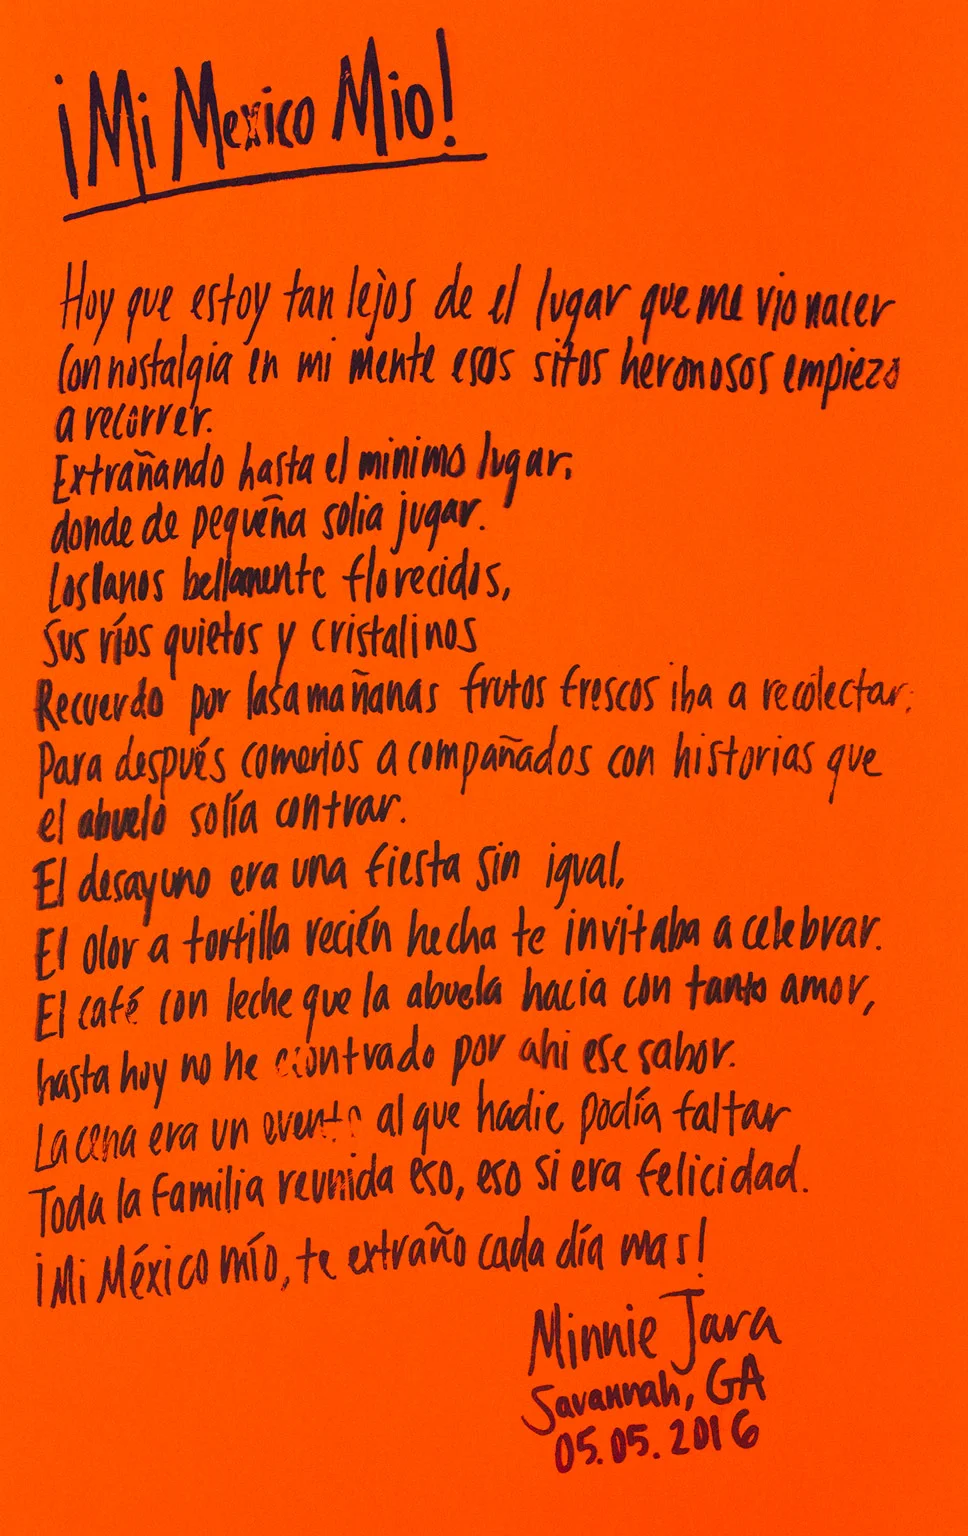 ¡Mi Mexico Mio!
Hoy que estoy tan lejos de el lugar que me vio nacer
Con nostalgia en mi mente esos sitos heromosos empiezo
a recorrer.
Extrañando hasta el minimo lugar,
donde de pequeña solia jugar.
Los lanos bellamente florecidos,
Sus ríos quietos y cristalinos
Recuerdo por lasa mañanas frutos frescos iba a recolectar.
Para después comerios a compañados con historias que
el abuelo solía contrar.
El desayuno era una fiesta sin igual,
El olor a tortilla recién hecha te invitaba a celebrar.
El café con leche que la abuela hacia con tanto amor,
hasta hoy no he contrado por ahi ese sabor.
La cena era un evento al que nadie podía faltar
Toda la familia reunida eso, eso si era felicidad.
¡Mi México mío, te extraño cada día mas!
Minnie Jara
Savannah, GA
05.05.2016